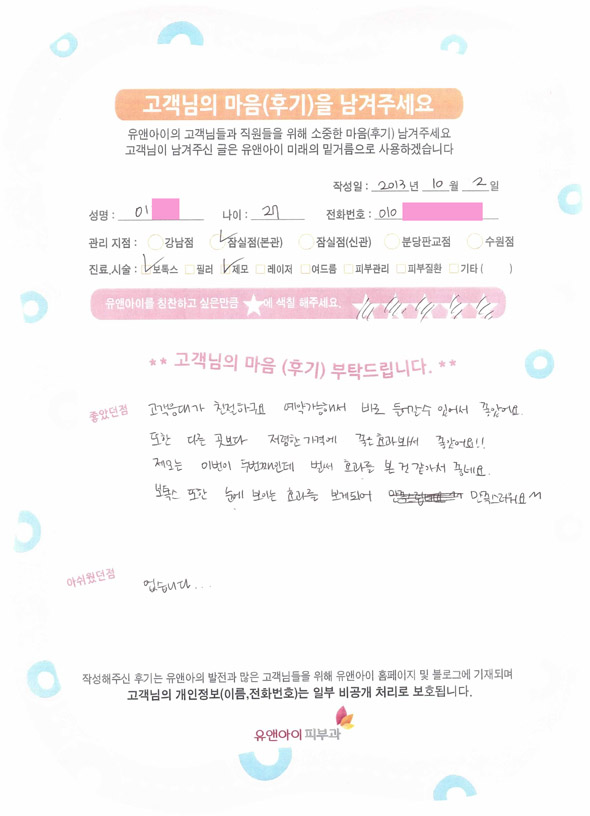 고객님의 마음(후기)을 남겨주세요
유앤아이의 고객님들과 직원들을 위해 소중한 마음(후기) 남겨주세요
고객님이 남겨주신 글은 유앤아이 미래의 밑거름으로 사용하겠습니다
작성일 : 2013 년 10 월 2 일
성명 : 이 나이 : 27 전화번호 : 010
관리 지점 : 강남점 잠실점(본관) 잠실점(신관) 분당판교점 수원점
진료,시술 : 보톡스 필러 제모 레이저 여드름 피부관리 피부질환 기타 ( )
유앤아이를 칭찬하고 싶은만큼 ★에 색칠 해주세요.
** 고객님의 마음 (후기) 부탁드립니다. **
좋았던점 고객응대가 친절하구요 예약가능해서 바로 들어갈수 있어서 좋았어요.
또한 다른 곳보다 저렴한 가격에 좋은 효과봐서 좋았어요!!
제모는 이번이 두번째인데 벌써 효과를 본 것 같아서 좋네요.
보톡스 또한 눈에 보이는 효과를 보게되어 만족스러워요^^
아쉬웠던점 없습니다...
작성해주신 후기는 유앤아의 발전과 많은 고객님들을 위해 유앤아이 홈페이지 및 블로그에 기재되며
고객님의 개인정보(이름,전화번호)는 일부 비공개 처리로 보호됩니다.
유앤아이 피부과